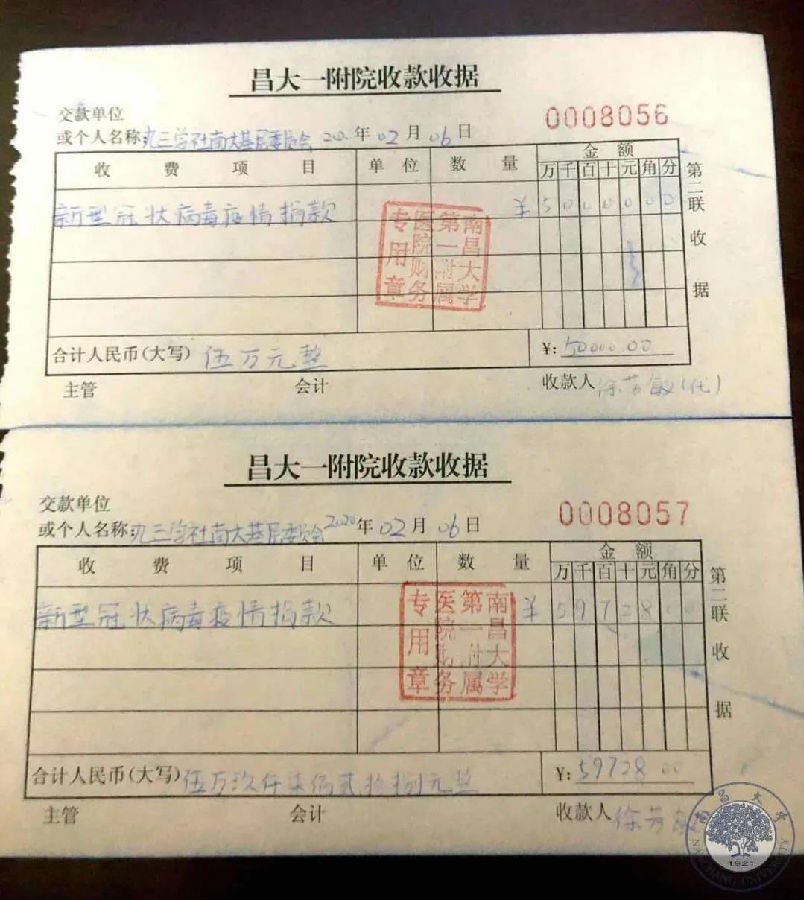 昌大一附院收款收据
交款单位
或个人名称:九三学社南大基层委员会 20 年 02 月 06 日
0008056
收 费 项 目 单 位 数 量 金 额
万 千 百 十 元 角 分
新型冠状病毒疫情捐款 ¥ 5 0 0 0 0 0 0
南昌大学
第一附属
医院财务
专用章
第二联 收据
合计人民币(大写) 伍万元整 ¥: 50000.00
主管 会计 收款人 徐芳敏(代)
昌大一附院收款收据
交款单位
或个人名称:九三学社南大基层委员会 2020 年 02 月 06 日
0008057
收 费 项 目 单 位 数 量 金 额
万 千 百 十 元 角 分
新型冠状病毒疫情捐款 ¥ 5 9 7 2 8 0 0
南昌大学
第一附属
医院财务
专用章
第二联 收据
合计人民币(大写) 伍万玖仟柒佰贰拾捌元整 ¥: 59728.00
主管 会计 收款人 徐芳
南昌大学
NANCHANG UNIVERSITY
1921